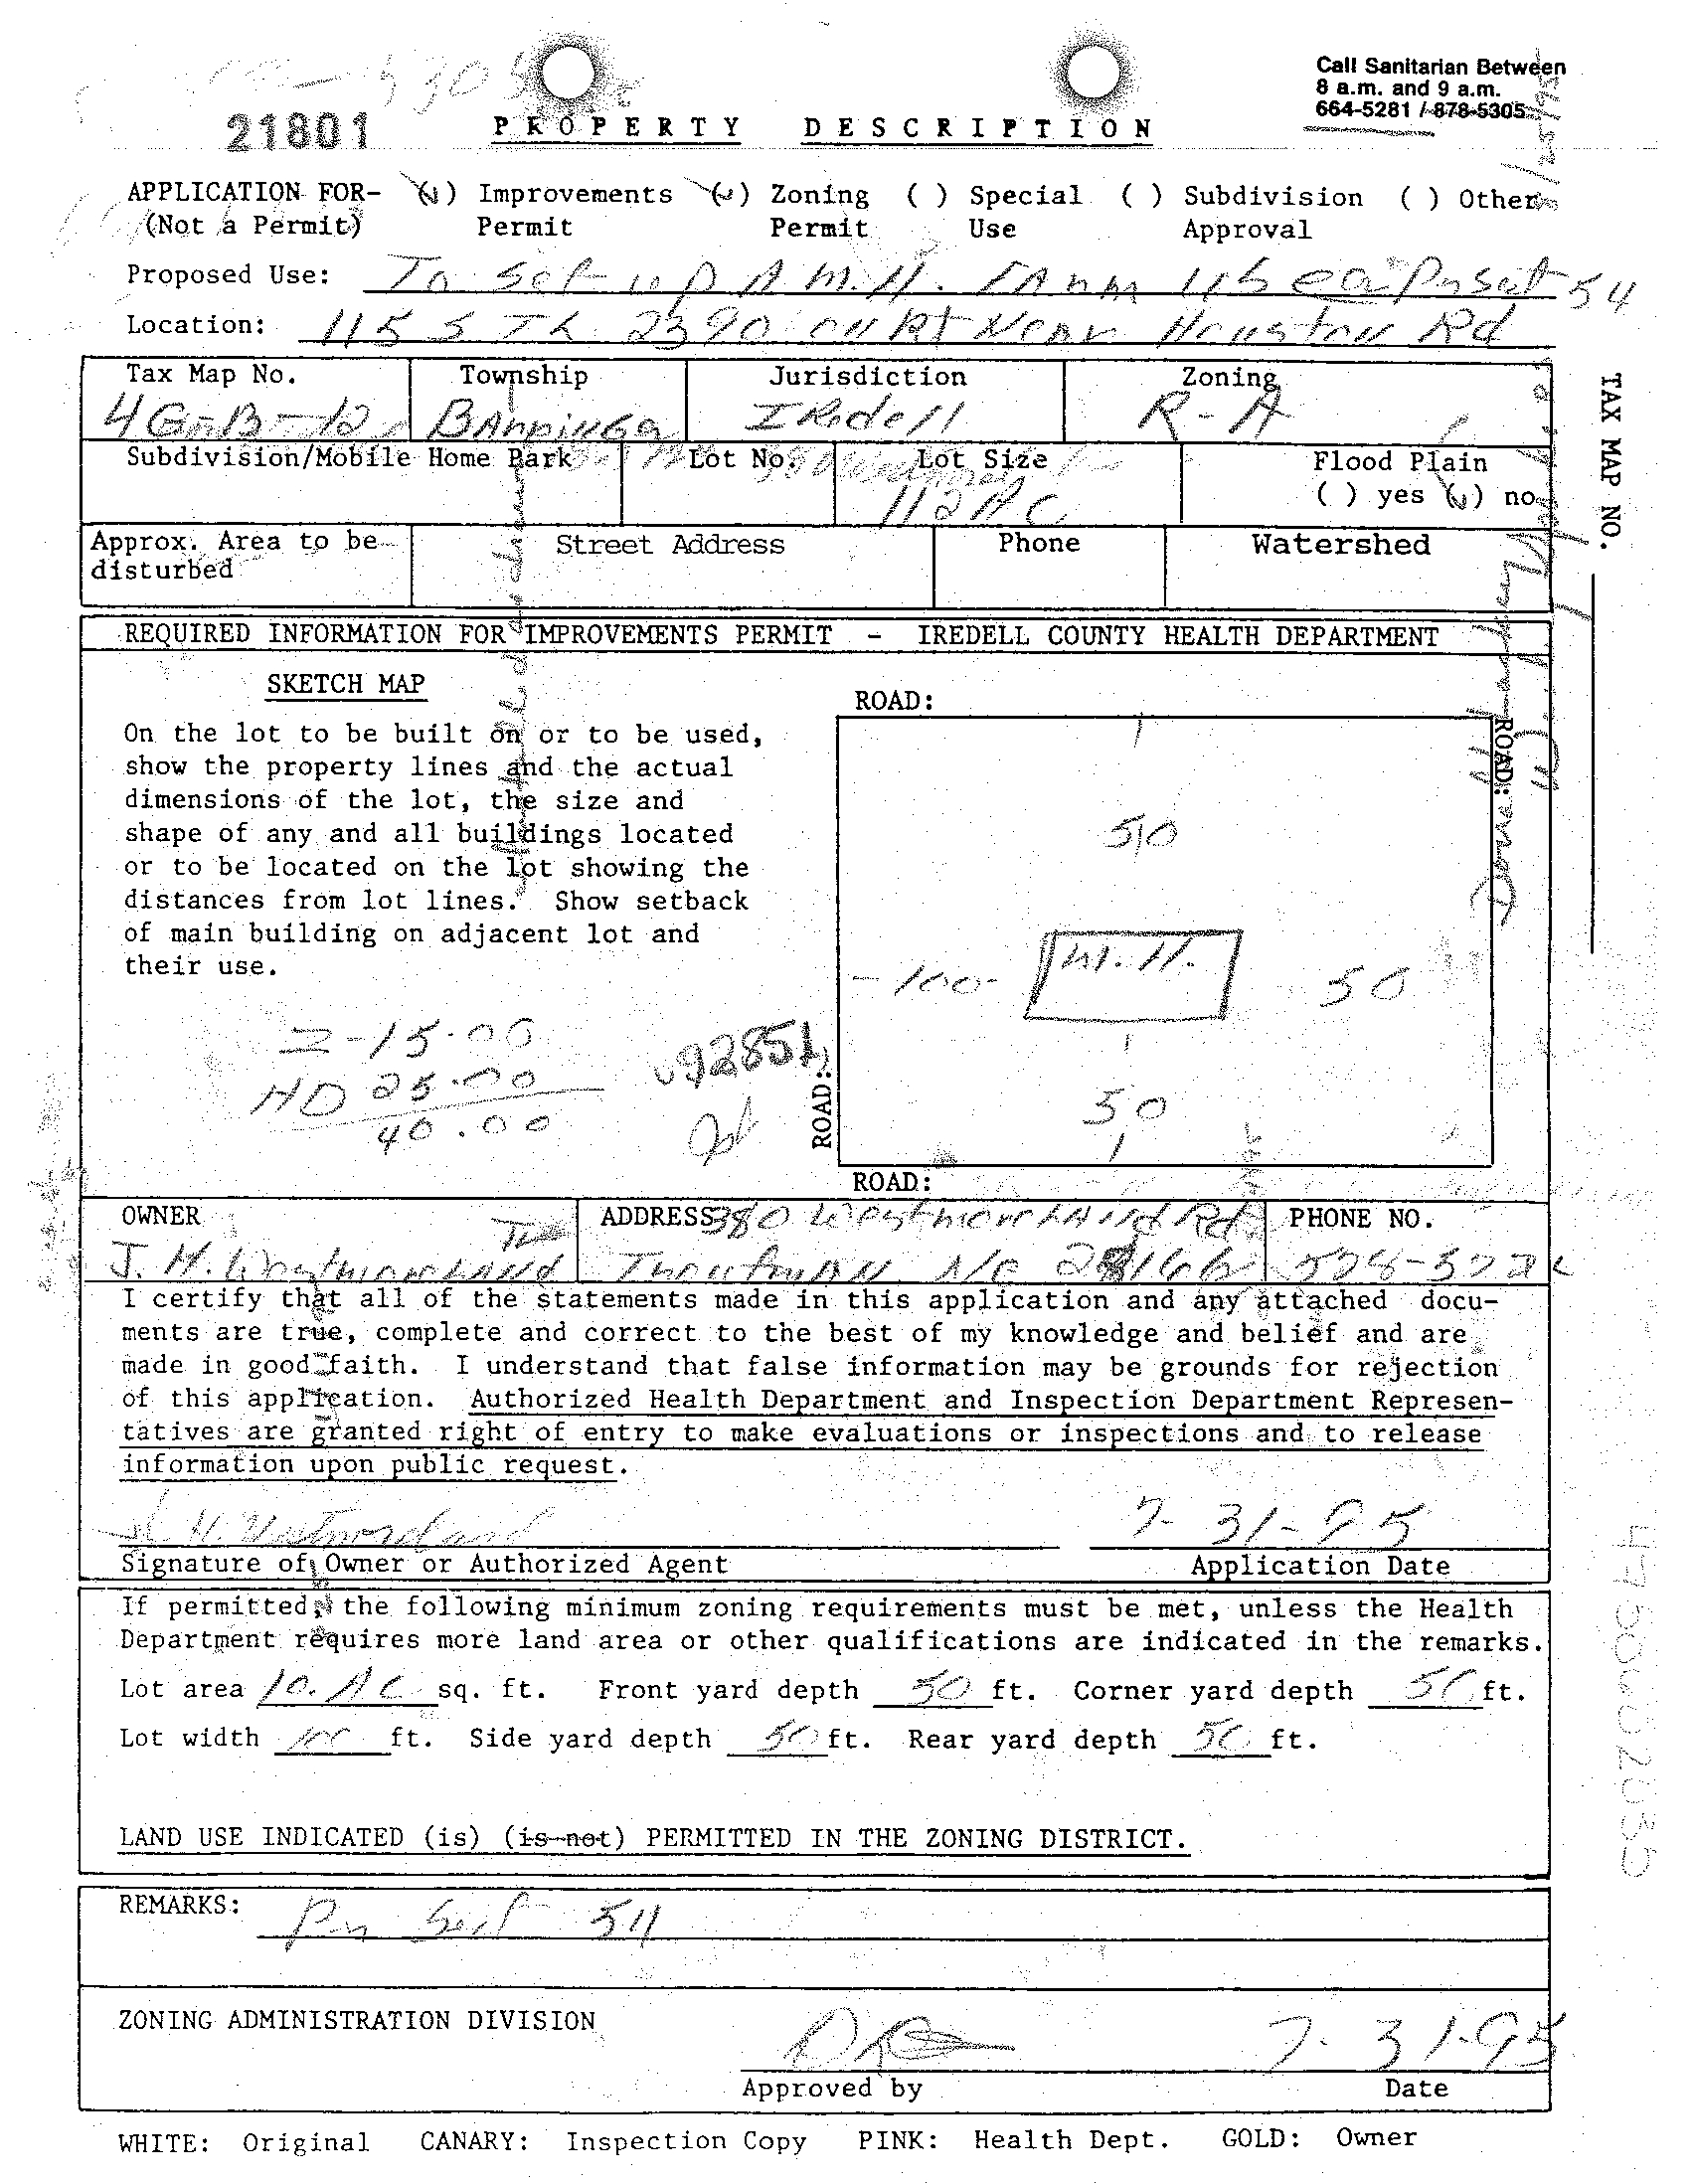 Call Sanitarian Between
8 a.m. and 9 a.m.
664-5281 / 878-5305
21801
PROPERTY DESCRIPTION
APPLICATION FOR- (✓) Improvements (✓) Zoning ( ) Special ( ) Subdivision ( ) Other
(Not a Permit) Permit Permit Use Approval
Proposed Use: To Set up A M.H. FARM USE Sect 54
Location: 115 S TL 2390 ON RT Near Houston Rd
Tax Map No. Township Jurisdiction Zoning
4G-B-12 BARRINGER IRedell R-A
Subdivision/Mobile Home Park Lot No. Lot Size Flood Plain
112 AC ( ) yes (✓) no
Approx. Area to be Street Address Phone Watershed
disturbed
TAX MAP NO.
REQUIRED INFORMATION FOR IMPROVEMENTS PERMIT - IREDELL COUNTY HEALTH DEPARTMENT
SKETCH MAP
ROAD:
On the lot to be built on or to be used,
show the property lines and the actual
dimensions of the lot, the size and
shape of any and all buildings located
or to be located on the lot showing the
distances from lot lines. Show setback
of main building on adjacent lot and
their use.
ROAD:
50
-100- M.H. 50
50
Z-15.00
HD 25.00
40.00
92851
ROAD:
ROAD:
OWNER ADDRESS 380 Westmoreland Rd PHONE NO.
J. H. Westmoreland Troutman NC 28166 528-
I certify that all of the statements made in this application and any attached docu-
ments are true, complete and correct to the best of my knowledge and belief and are
made in good faith. I understand that false information may be grounds for rejection
of this application. Authorized Health Department and Inspection Department Represen-
tatives are granted right of entry to make evaluations or inspections and to release
information upon public request.
J. H. Westmoreland 7-31-95
Signature of Owner or Authorized Agent Application Date
If permitted, the following minimum zoning requirements must be met, unless the Health
Department requires more land area or other qualifications are indicated in the remarks.
Lot area 10. AC sq. ft. Front yard depth 50 ft. Corner yard depth 50 ft.
Lot width 100 ft. Side yard depth 50 ft. Rear yard depth 50 ft.
LAND USE INDICATED (is) (is not) PERMITTED IN THE ZONING DISTRICT.
REMARKS: Per Sect 54
ZONING ADMINISTRATION DIVISION
7-31-95
Approved by Date
WHITE: Original CANARY: Inspection Copy PINK: Health Dept. GOLD: Owner